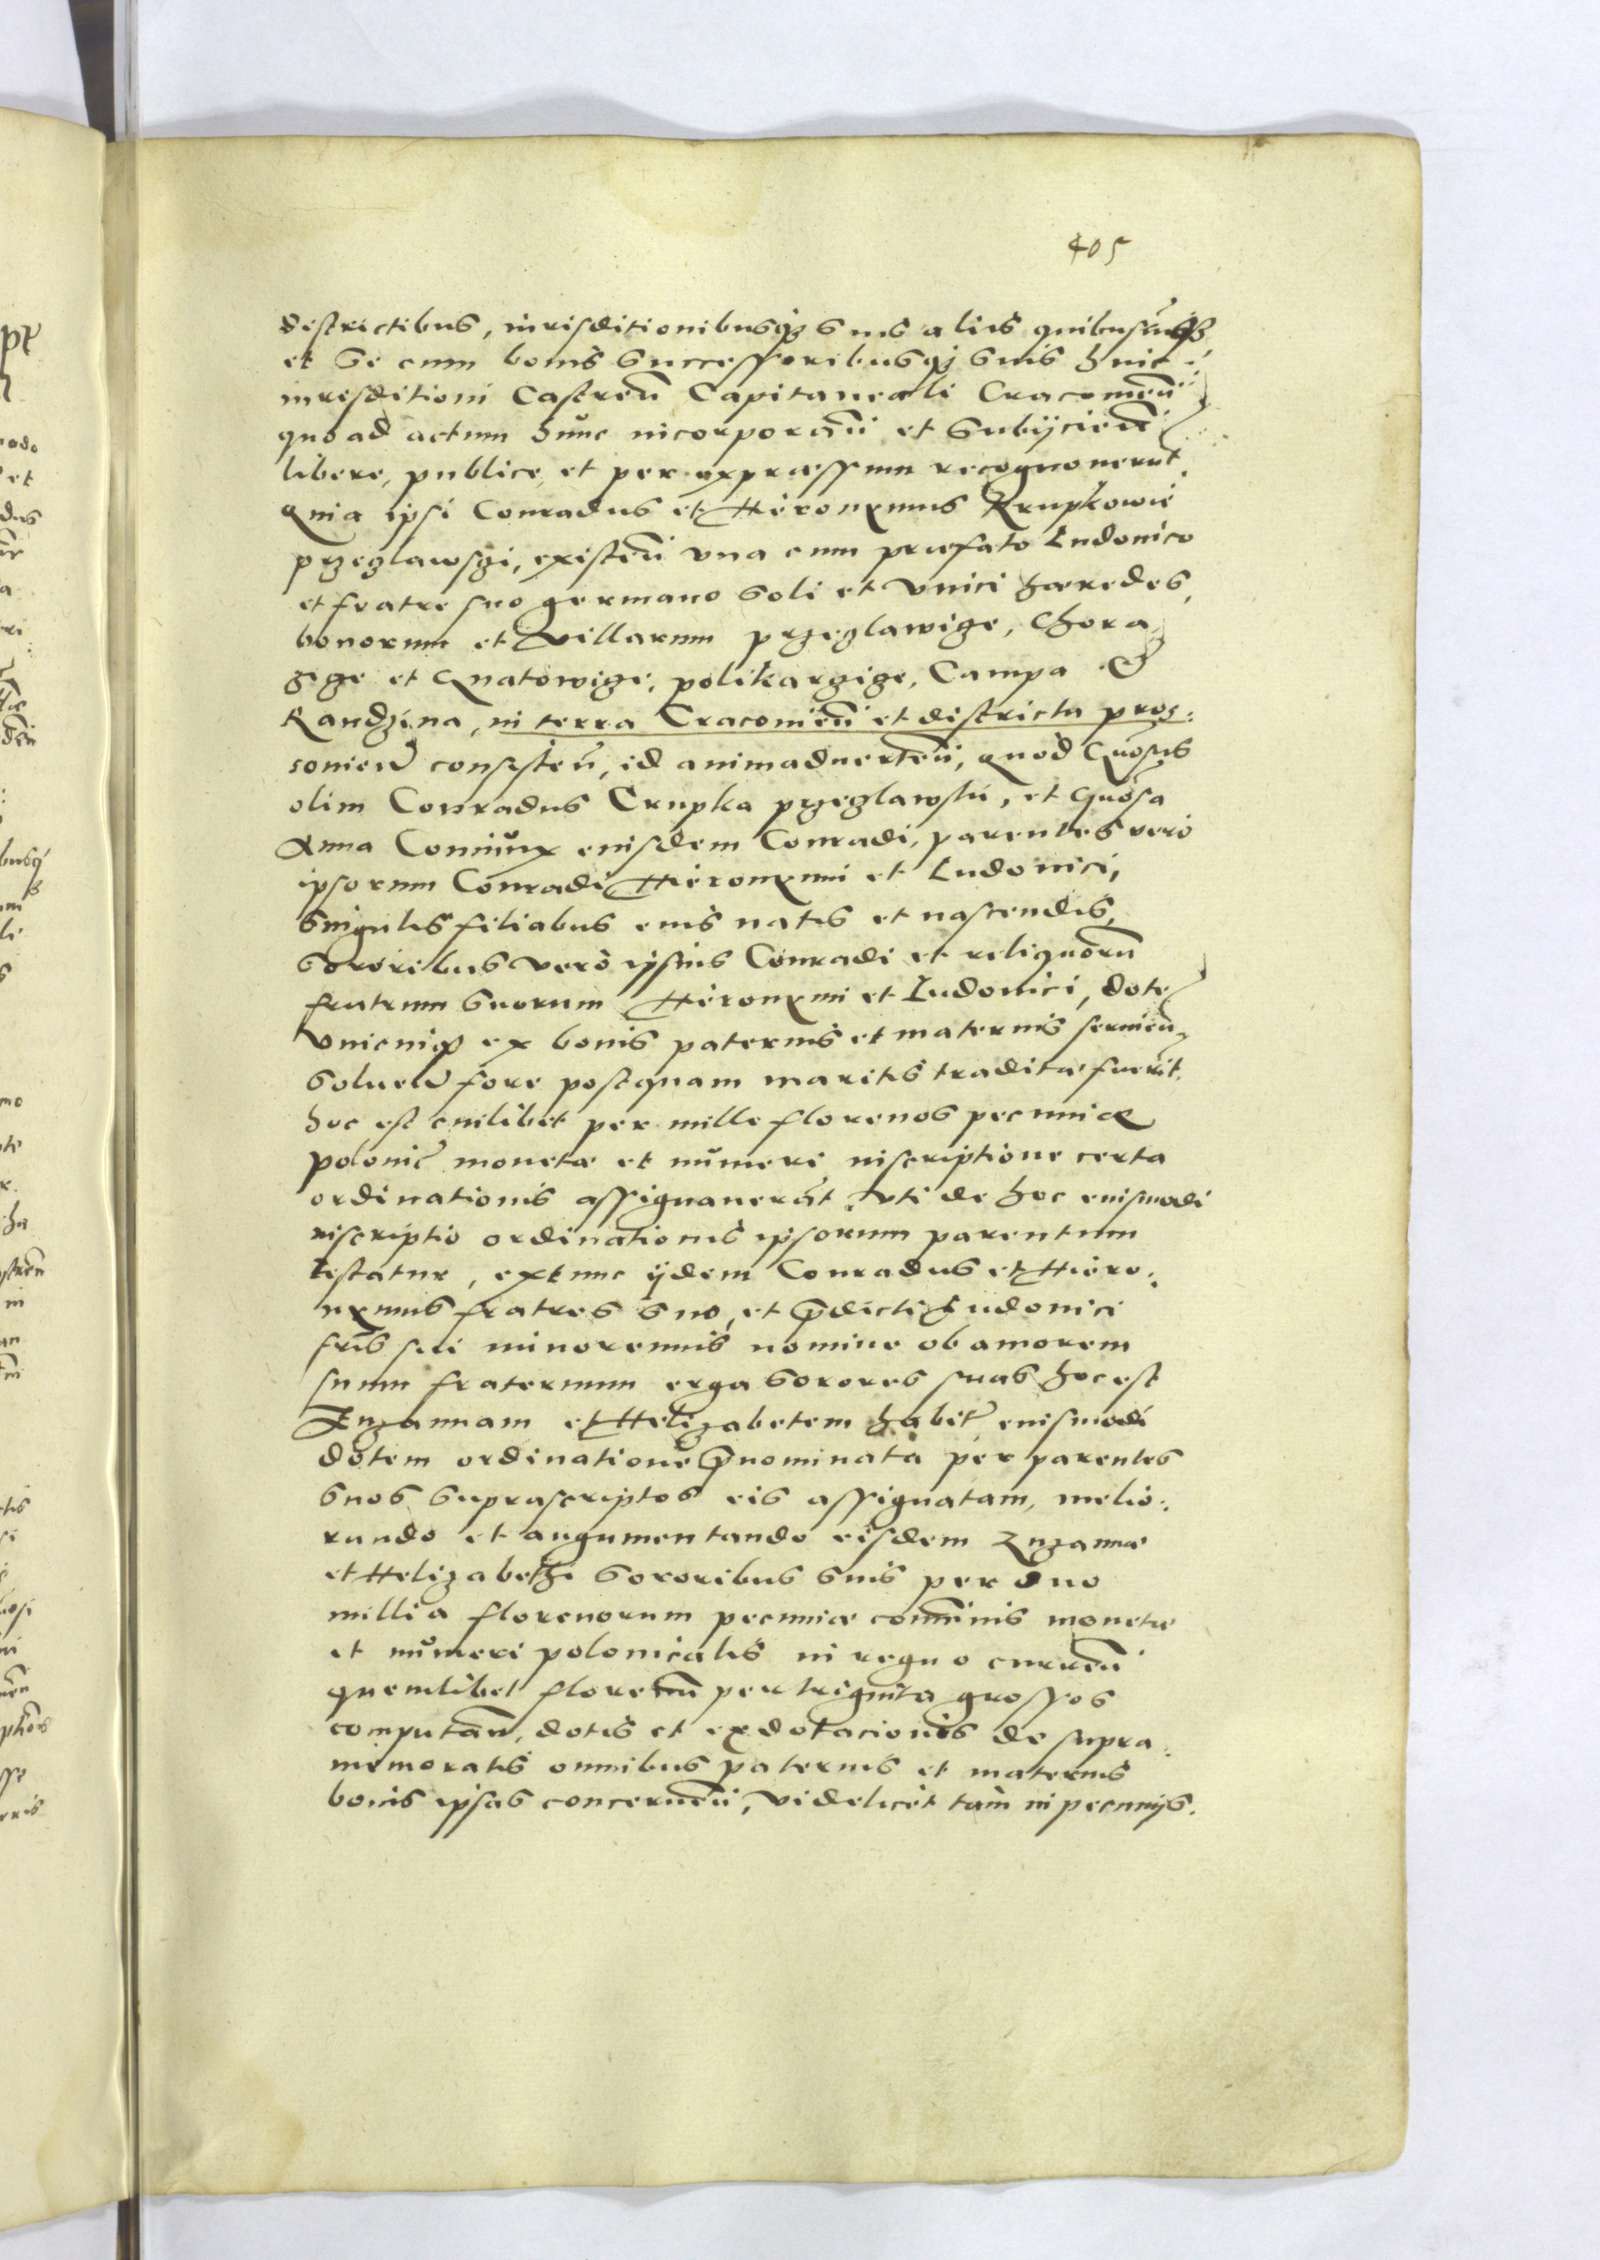 405
districtibus, iurisditionibusq3 suis aliis quibuscũq3
et se cum bonis successoribusq3 suis huic
iurisditioni Castreñ Capitaneali Cracovieñ
quoad actum hunc incorporañ et subijcieñ
libere, publice, et per expressum recognoverũt.
Quia ipsi Conradus et Hieronymus Krupkowie
przeglawszi, existeñ vna cum praefato Ludovico
et fratre suo germano soli et vnici haeredes,
bonorum et villarum przeglawize, Chora
zize et Gnatowize, polikarzize, Campa &
Kandzina, in terra Cracovieñ et districtu pros:
sovieñ consisteñ, id animadverteñ, quod Gñosus
olim Conradus Crupka przeglawski, et Gñosa
Anna Coniunx eiusdem Conradi, parentes vero
ipsorum Conradi Hieronymi et Ludovici,
singulis filiabus eius natis et nascendis,
sororibus vero ipsius Conradi et reliquorũ
fratrum suorum Hieronymi et Ludovici, dote
vnicuiq3 ex bonis paternis et maternis servieñ
solueñ fore postquam maritis traditae fuerit.
hoc est cuilibet per mille florenos pecuniae
polonic̃ monetae et numeri inscriptione certa
ordinationis assignaverãt. Vti de hoc eiusmodi
inscriptio ordinationis ipsorum parentum
testatur, extunc ijdem Conradus et Hiero:
nymus fratres suo, et p̃dicti Ludovici
fris sui minorennis nomine ob amorem
suum fraternum erga sorores suas hoc est
Zuzannam et Helizabetem habit̃ eiusmodi
dotem ordinatione p̃nominata per parentes
suos suprascriptos eis assignatam, melio:
rando et augumentando eisdem Zuzannae
et Helizabethi sororibus suis per duo
millia florenorum pecuniae com̃unis monetae
et numeri polonicalis in regno curreñ
quemlibet florenũ per triginta grossos
computañ, dotis et exdotacionis de supra:
memoratis omnibus paternis et maternis
bonis ipsas concerneñ, videlicet tam in pecunijs.